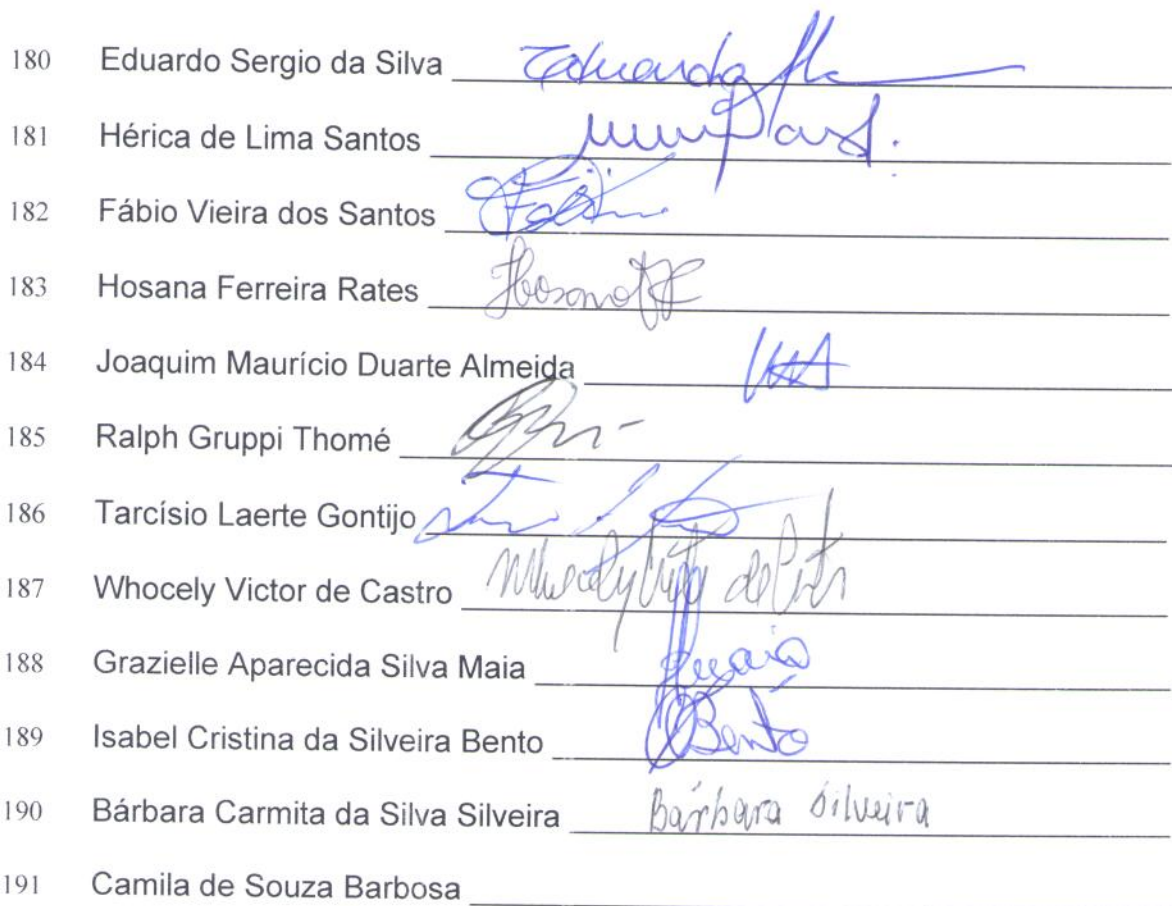 180 Eduardo Sergio da Silva Eduardo
181 Hérica de Lima Santos
182 Fábio Vieira dos Santos
183 Hosana Ferreira Rates
184 Joaquim Maurício Duarte Almeida
185 Ralph Gruppi Thomé
186 Tarcísio Laerte Gontijo
187 Whocely Victor de Castro Whocely Victor de Castro
188 Grazielle Aparecida Silva Maia
189 Isabel Cristina da Silveira Bento Bento
190 Bárbara Carmita da Silva Silveira Bárbara Silveira
191 Camila de Souza Barbosa